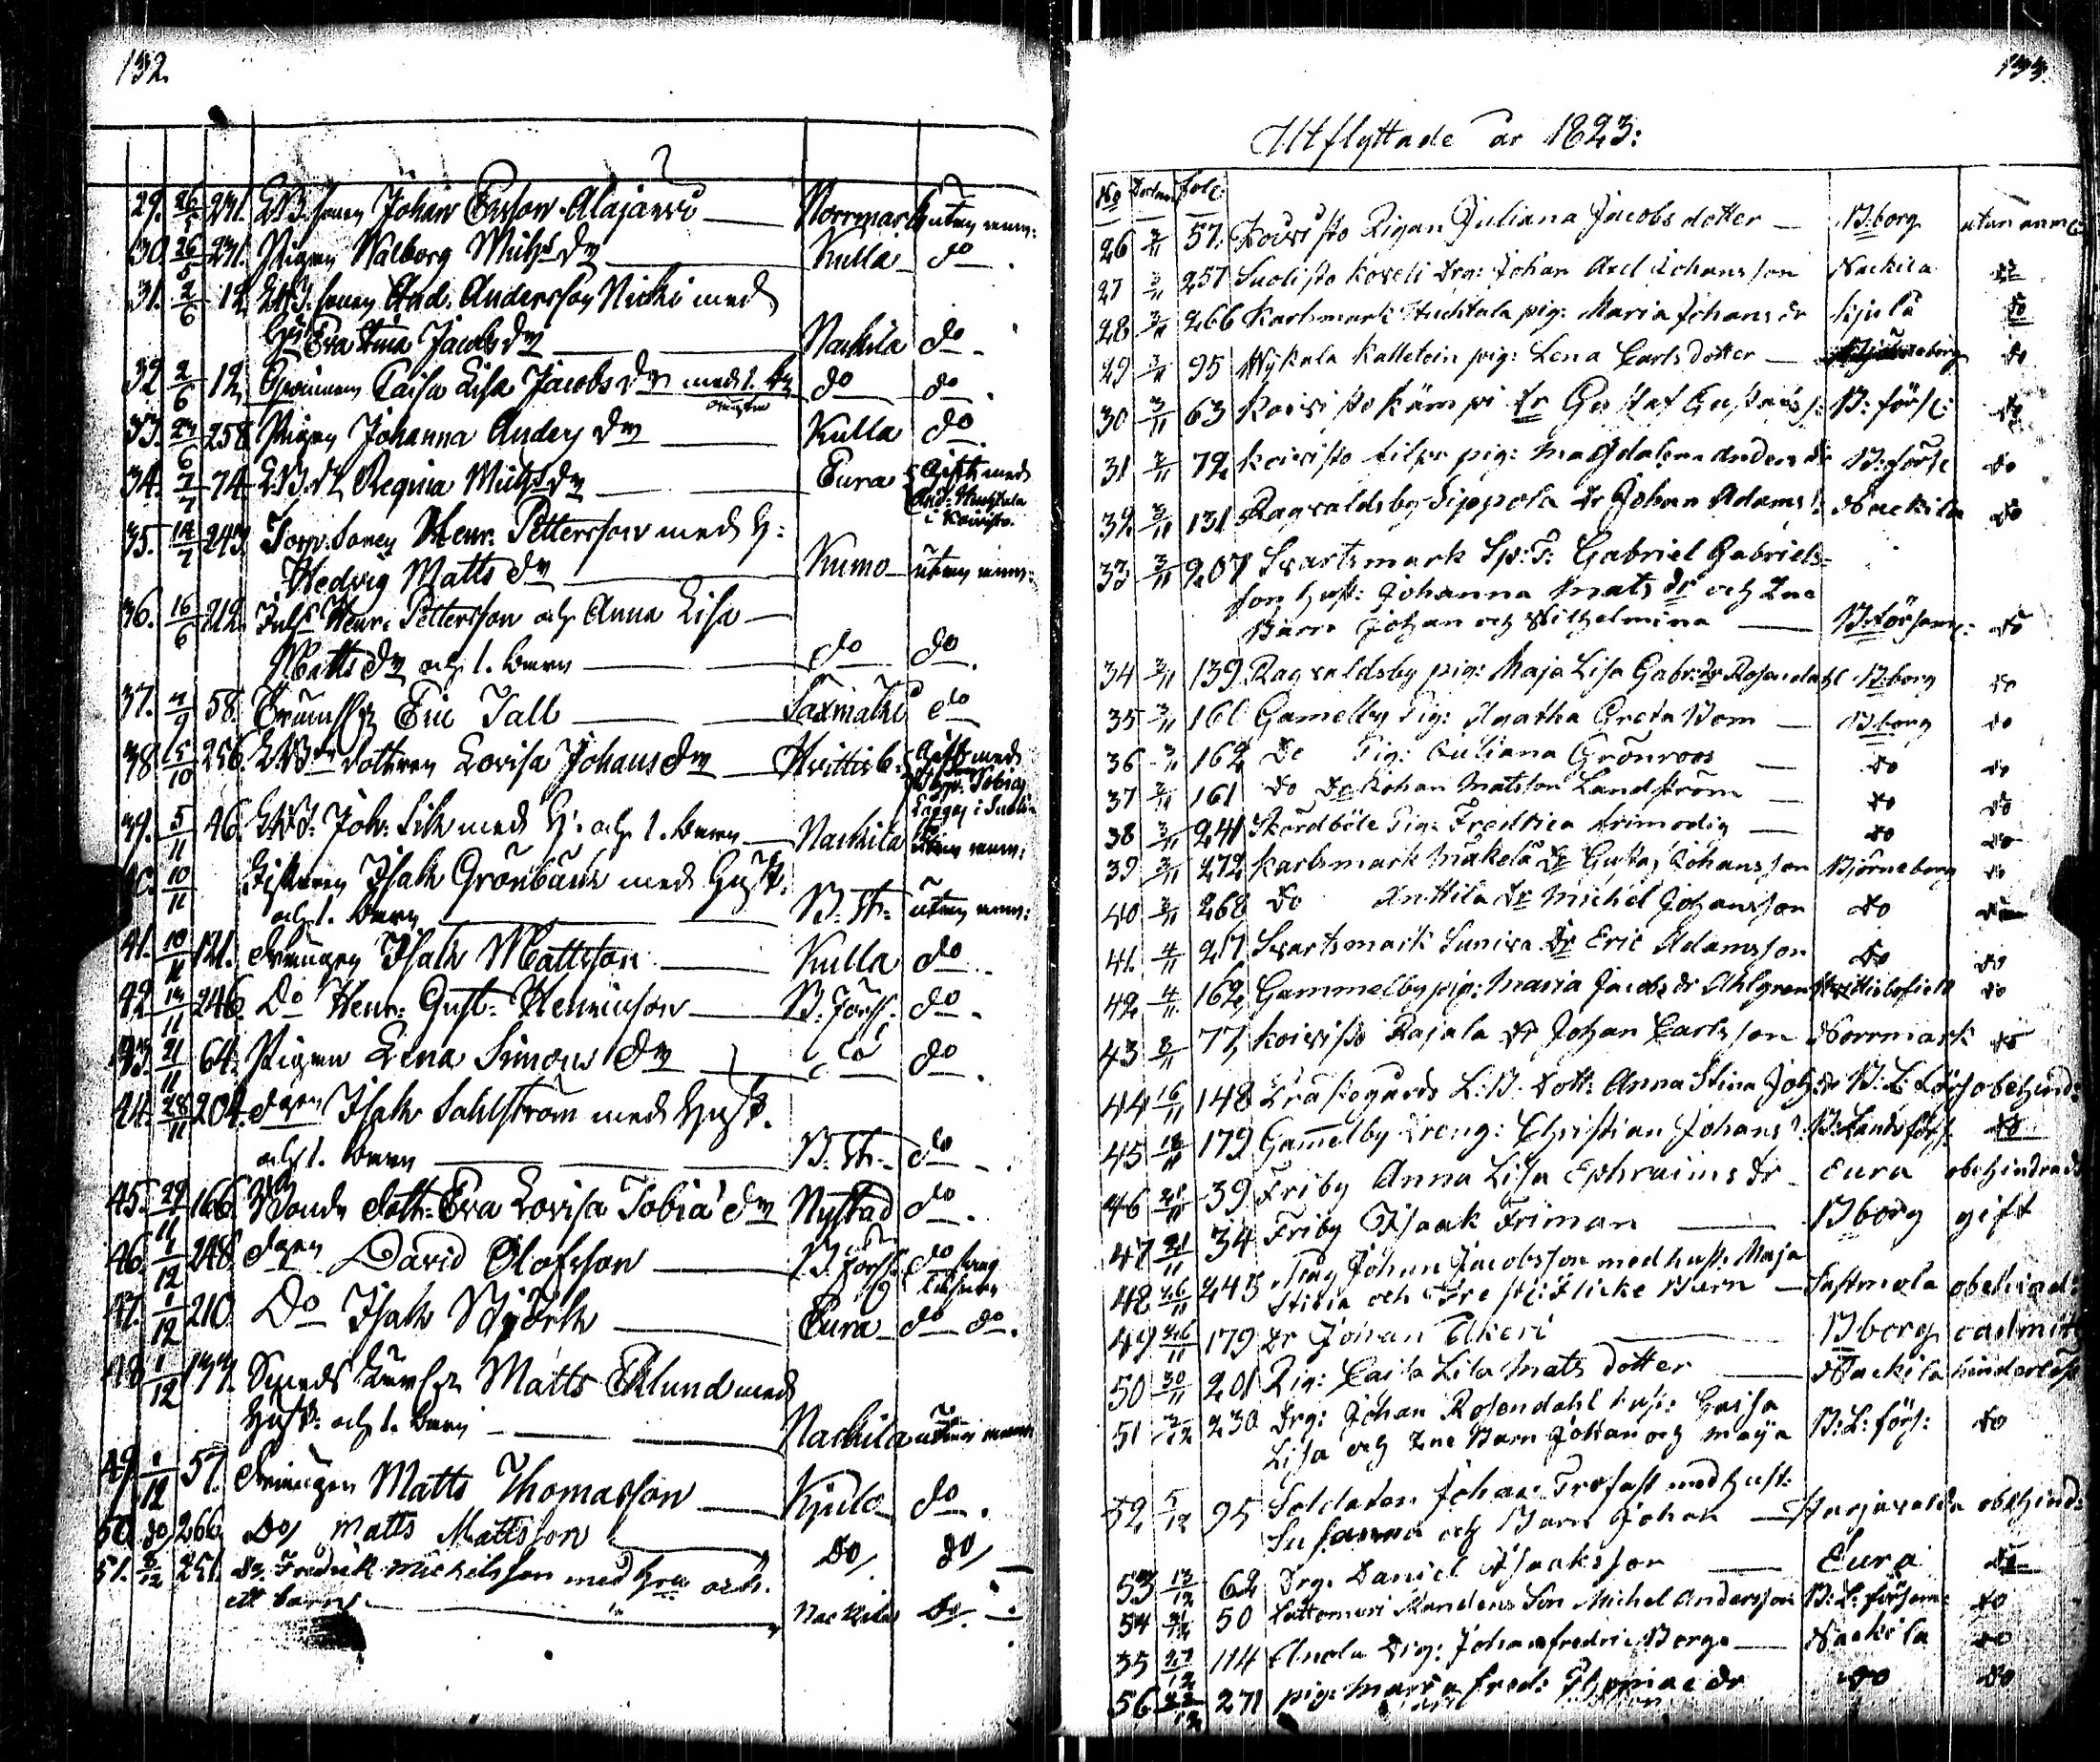 132.
29. 26/5 231. Johan Ersson Alajärvi — Norrmark utan anm:
30. 26/5 231. Pigan Walborg Michs dr — Kulla do.
31. 2/6 12. And. Andersson Nicki med
Hu Eva Stina Jacobs dr — Nackila do.
32. 2/6 12. Qvinnan Caisa Lisa Jacobs dr med 1. do do.
33. 258. Pigan Johanna Anders dr — Kulla do.
34. 7/7 74. Regina Michs dr — Eura Gift med
i Koivisto.
35. 14/7 243. Torp. Sonen Henr. Pettersson med H:
Hedvig Matts dr — Kumo utan anm:
36. 16/6 212. Inhs Henr. Pettersson och Anna Lisa —
Matts dr och 1. barn — do do.
37. 4/9 58. Eric Tall — Sastmola do
38. 15/10 256. dottren Lovisa Johans dr — Hvittisb. Gift med
Tobias
39. 5/11 46. Joh: med H: och 1. barn — Nackila utan anm:
40. 10/11 Isak Grönbäck med Hust.
och 1. barn — B. St. utan anm:
41. 10/11 121. Drängen Isak Mattsson — Kulla do.
42. 14/11 246. Do Henr. Gust. Henricsson — B. Förs. do.
43. 21/11 64. Pigan Lena Simons dr — do do.
44. 28/11 204. Drgen Isak Sahlström med Hust.
och 1. barn — B. St. do.
45. 29/11 166. Bonde dott: Eva Lovisa Tobiæ dr Nystad do.
46. 1/12 248. Drgen David Olofsson — B. Förs. do
47. 1/12 210. Do Isak Björk — Eura do do.
48. 1/12 177. Smeds Matts Eklund med
Hust: och 1. barn — Nackila utan anm:
49. 1/12 57. Drängen Matts Thomasson — Kjulo do.
50. do 266. Do/ Matts Mattsson Do/ do/
51. 8/12 251. Dr. Fredrik Michelsson med Hru och
ett barn — Nackila do.
133.
Utflyttade år 1823:
No Datum fol:
26 3/11 57. Koivisto Pigan Juliana Jacobs dotter — B:borg utan anm:
27 3/11 257 Suolisto Koveli Drg: Johan Axel Johansson Nackila do
28 3/11 266 Karlsmark Huchtala pig: Maria Johans dr Kjulå do
29 3/11 95 Hykala Kalletoin pig: Lena Carls dotter — do
30 3/11 63 Koivisto Kämpi Dr Gustaf Gustavs s: B: förs: do
31 3/11 72 Koivisto Filpu pig: Magdalena Anders dr B: förs: do
32 3/11 131 Ragvaldsby Sippola Dr Johan Adams s: Nackila do
33 3/11 207 Svartsmark Sp: T: Gabriel Gabriels=
son hust: Johanna Mats dr och 2ne
Barn Johan och Wilhelmina — B: försam: do
34 3/11 139 Ragvaldsby pig: Maja Lisa Gabr: dr Rosendahl B:borg do
35 3/11 160 Gamelby Pig: Agatha Greta Bom — B:borg do
36 3/11 162 Do Pig: Juliana Grönroos — do do
37 3/11 161 Do Dr Johan Matsson Landström — do do
38 3/11 241 Skördböle Pig: Fredrica Frimodig — do do
39 3/11 272 Karlsmark Mäkelä Dr Gustaf Johansson Björneborg do
40 3/11 268 Do Anttila Dr Michel Johansson do do
41. 4/11 217 Svartsmark Suniva Dr Eric Adamsson do do
42 4/11 162 Gammelby pig: Maria Jacobs dr Ahlgren Hvittisbofierd do
43 8/11 77 Koivisto Rajala Dr Johan Carlsson Norrmark do
44 16/11 148 Kråkegårds L: B. Dott: Anna Stina Joh: dr B: L: förs obehind:
45 18/11 179 Gamelby Dreng: Christian Johans s: B: Lands förs. do
46 21/11 39 Friby Anna Lisa Ephraims dr Eura obehindrad
47 21/11 34 Friby Isaak Friman — B borg gift
48 26/11 243 Johan Jacobsson med hust. Maja
Stina och Tre st: Flicke Barn — Sastmola obehind:
49 26/11 179 Dr Johan Akeri — B borg
50 30/11 201 Pig: Caisa Lisa Mats dotter — Nackila hinderlös
51 3/12 230 Drg: Johan Rosendahl hust: Caisa
Lisa och 2ne Barn Johan och Maja B: L: förs: do
52 5/12 95 Soldaten Johan Trofast med hust:
Susanna och Barn Johan — Harjavalda obehind:
53 13/12 62 Drg. Daniel Isaksson — Eura do
54 21/12 50 Lattomeri Mandens Son Michel Andersson B: L: försam: do
55 27/12 114 Anola Drg: Johan fredric Borge — Nackila do
56 22/12 271 pig: Maria Fred: Thomæ dr do do